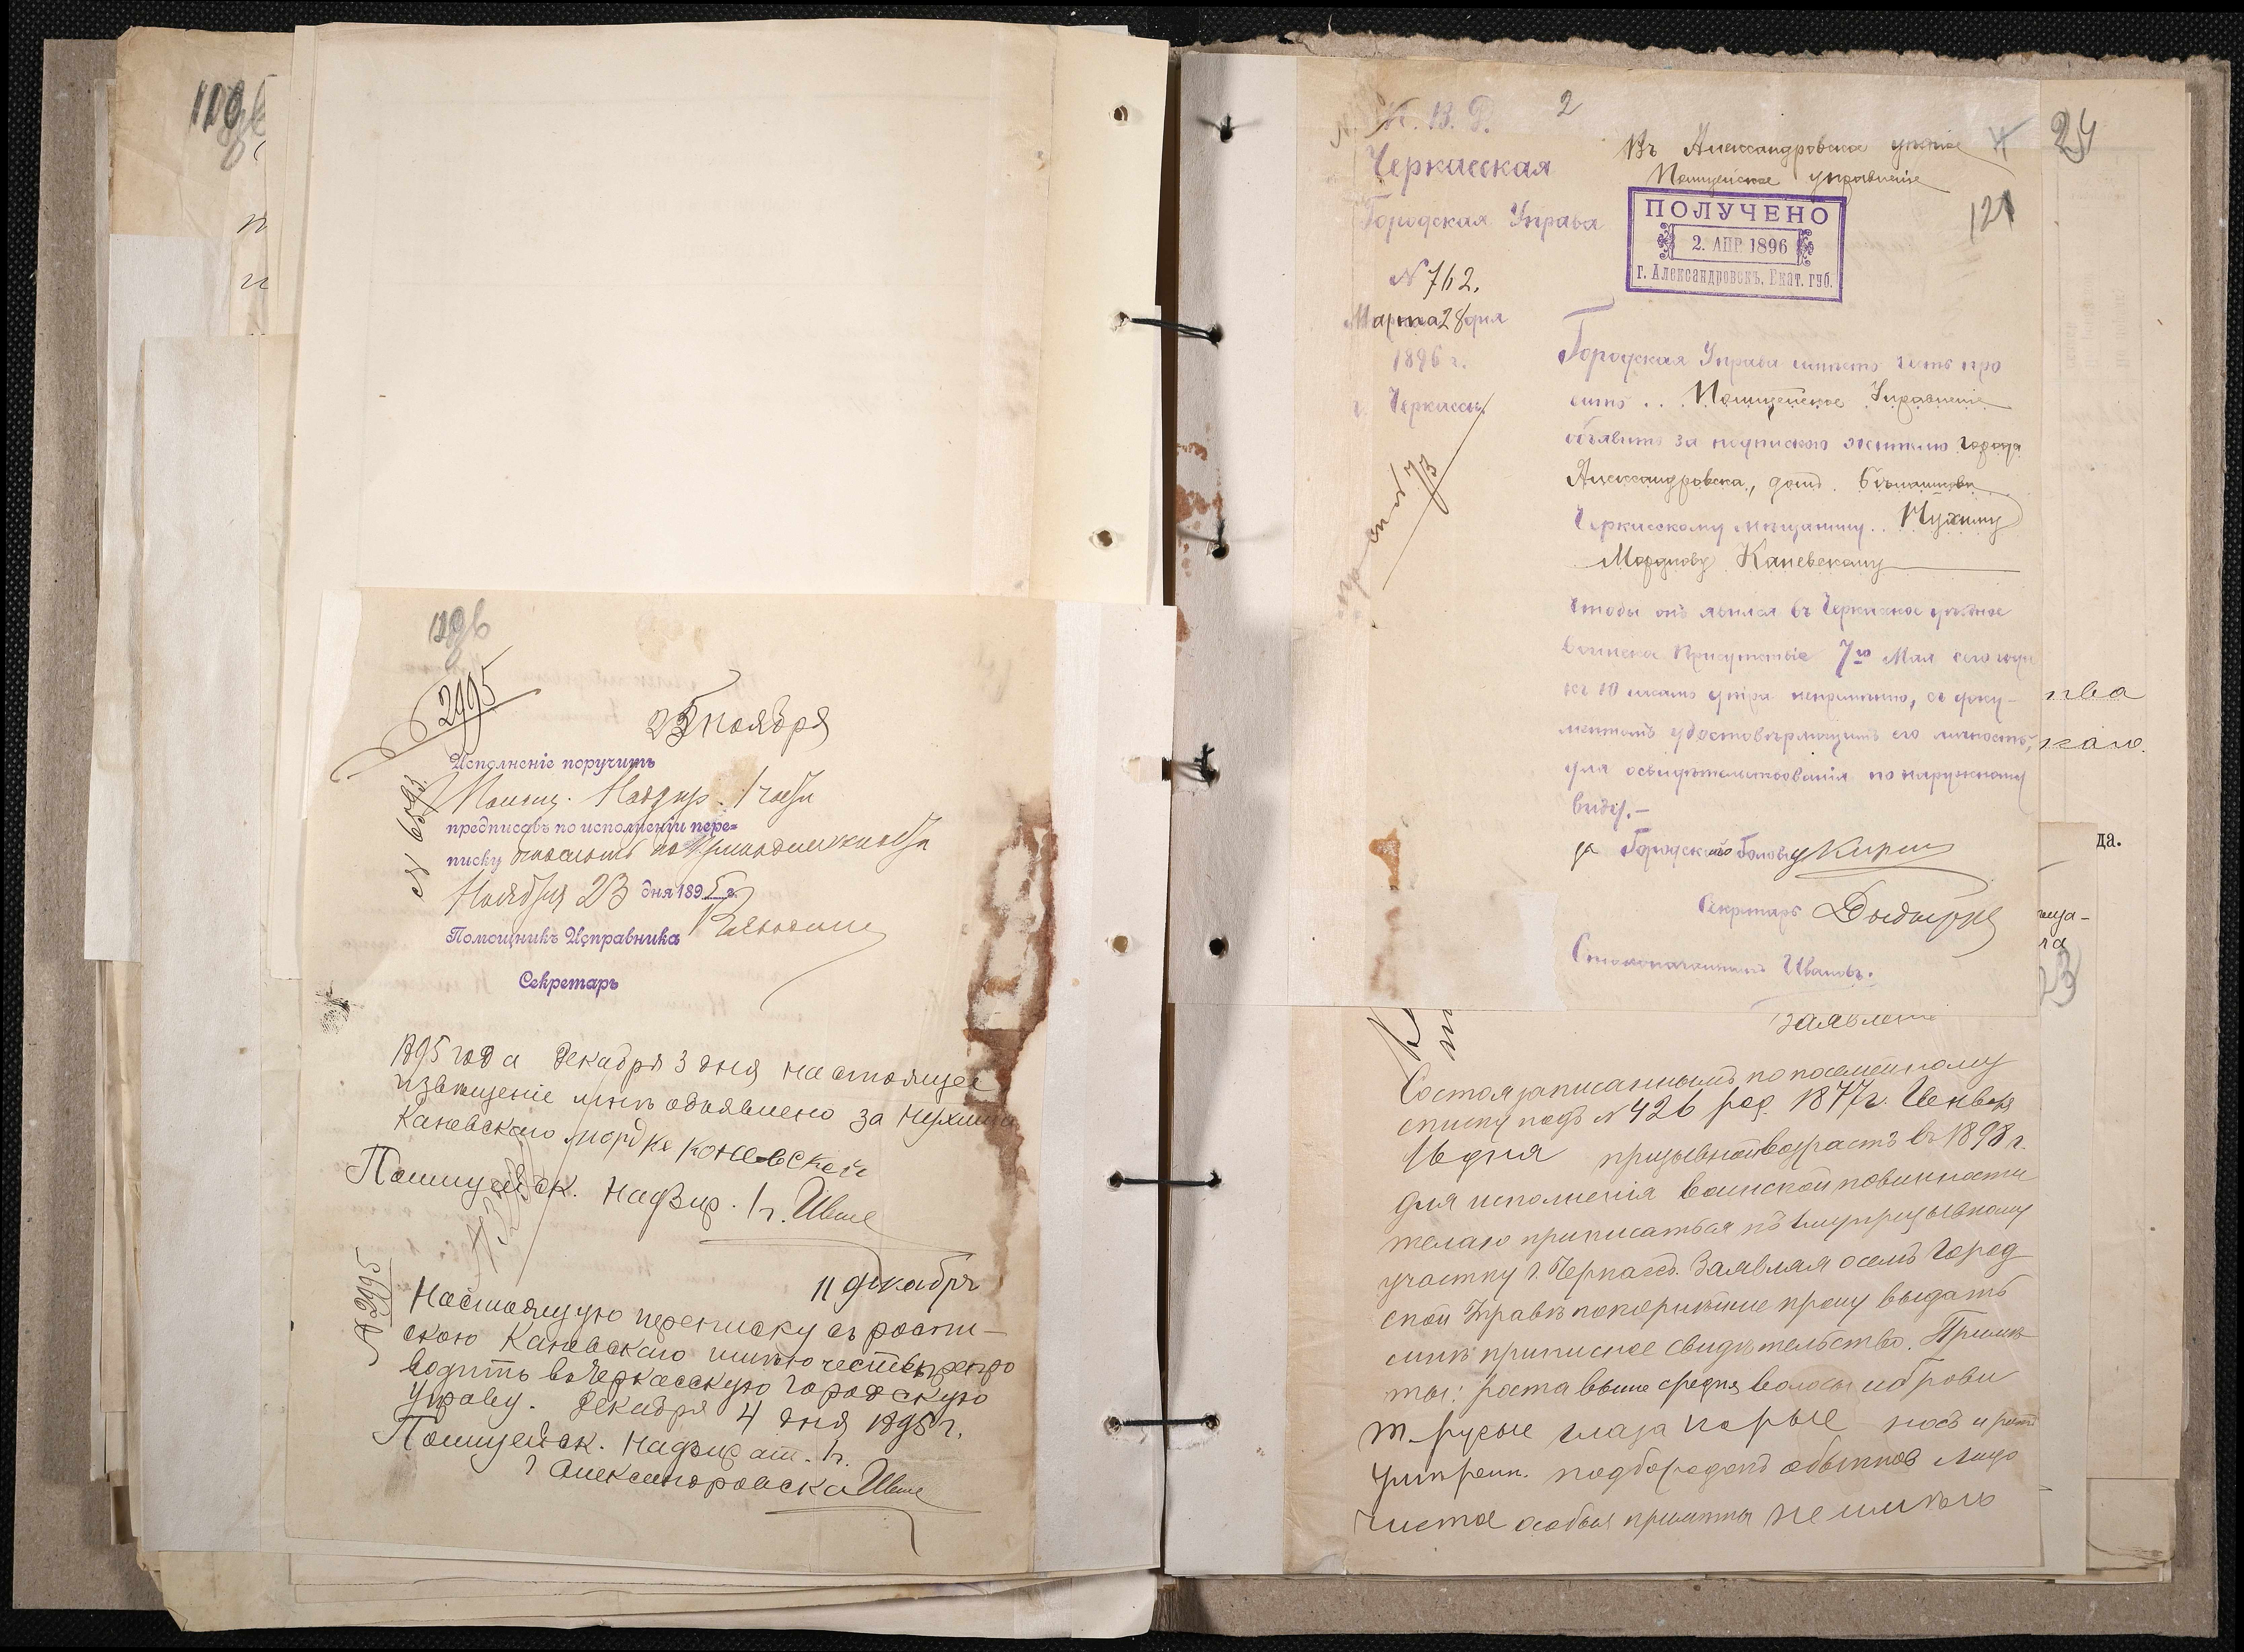 2995
№ 6593.
25 Ноября
Исполненіе поручить
Надзир. 1 части
предписавъ по исполненіи пере=
писку
Ноября 23 дня 1895 г.
Помощникъ Исправника
Секретарь
1895 года Декабря 3 дня настоящее
извѣщеніе мнѣ объявлено за Нухима
Каневскаго мордке коневской
Полицейск. Надзир. 1 ч.
№ 2995
11 декабря
Настоящую переписку съ роспи-
скою Каневскаго имѣю честь препро
водить въ Черкасскую городскую
Управу. Декабря 4 дня 1895 г.
Полицейск. надзират. 1 ч.
г Александровска
М. В. Д.
2
Черкасская
Городская Управа
№ 762.
Марта 28 дня
1896 г.
г. Черкассы.
Въ Александровское уѣздное
Полицейское управленіе
24
121
ПОЛУЧЕНО
2. АПР. 1896
г. Александровскъ, Екат. губ.
Городская Управа имѣетъ честь про
сить .. Полицейское Управленіе
объявить за подпискою жителю города
Александровска, домъ
Черкасскому мѣщанину .. Нухиму
Мордкову Каневскому
чтобы онъ явился въ Черкасское уѣздное
воинское Присутствіе 7го Мая сего года
къ 10 часамъ утра непремѣнно, съ доку-
ментомъ удостовѣряющимъ его личность,
для освидѣтельствованія по наружному
виду.-
за Городскаго Голову
Секретарь
Столоначальникъ Ивановъ.
тва
каго.
да.
23
Заявленіе
Состоя записаннымъ по посемейному
списку подъ № 426 род. 1877 г. Генваря
16 дня призывной возрастъ въ 1898 г.
для исполненія воинской повинности
желаю приписаться къ 1му призывному
участку г. Черкассъ. Заявляя о семъ Город
ской Управѣ покорнѣйше прошу выдать
мнѣ приписное свидѣтельство. Примѣ
ты: роста выше средня волосы и брови
т-русые глаза карые носъ и ротъ
умѣренн. подбородокъ обыкнов лицо
чистое особыя примѣты не имѣю